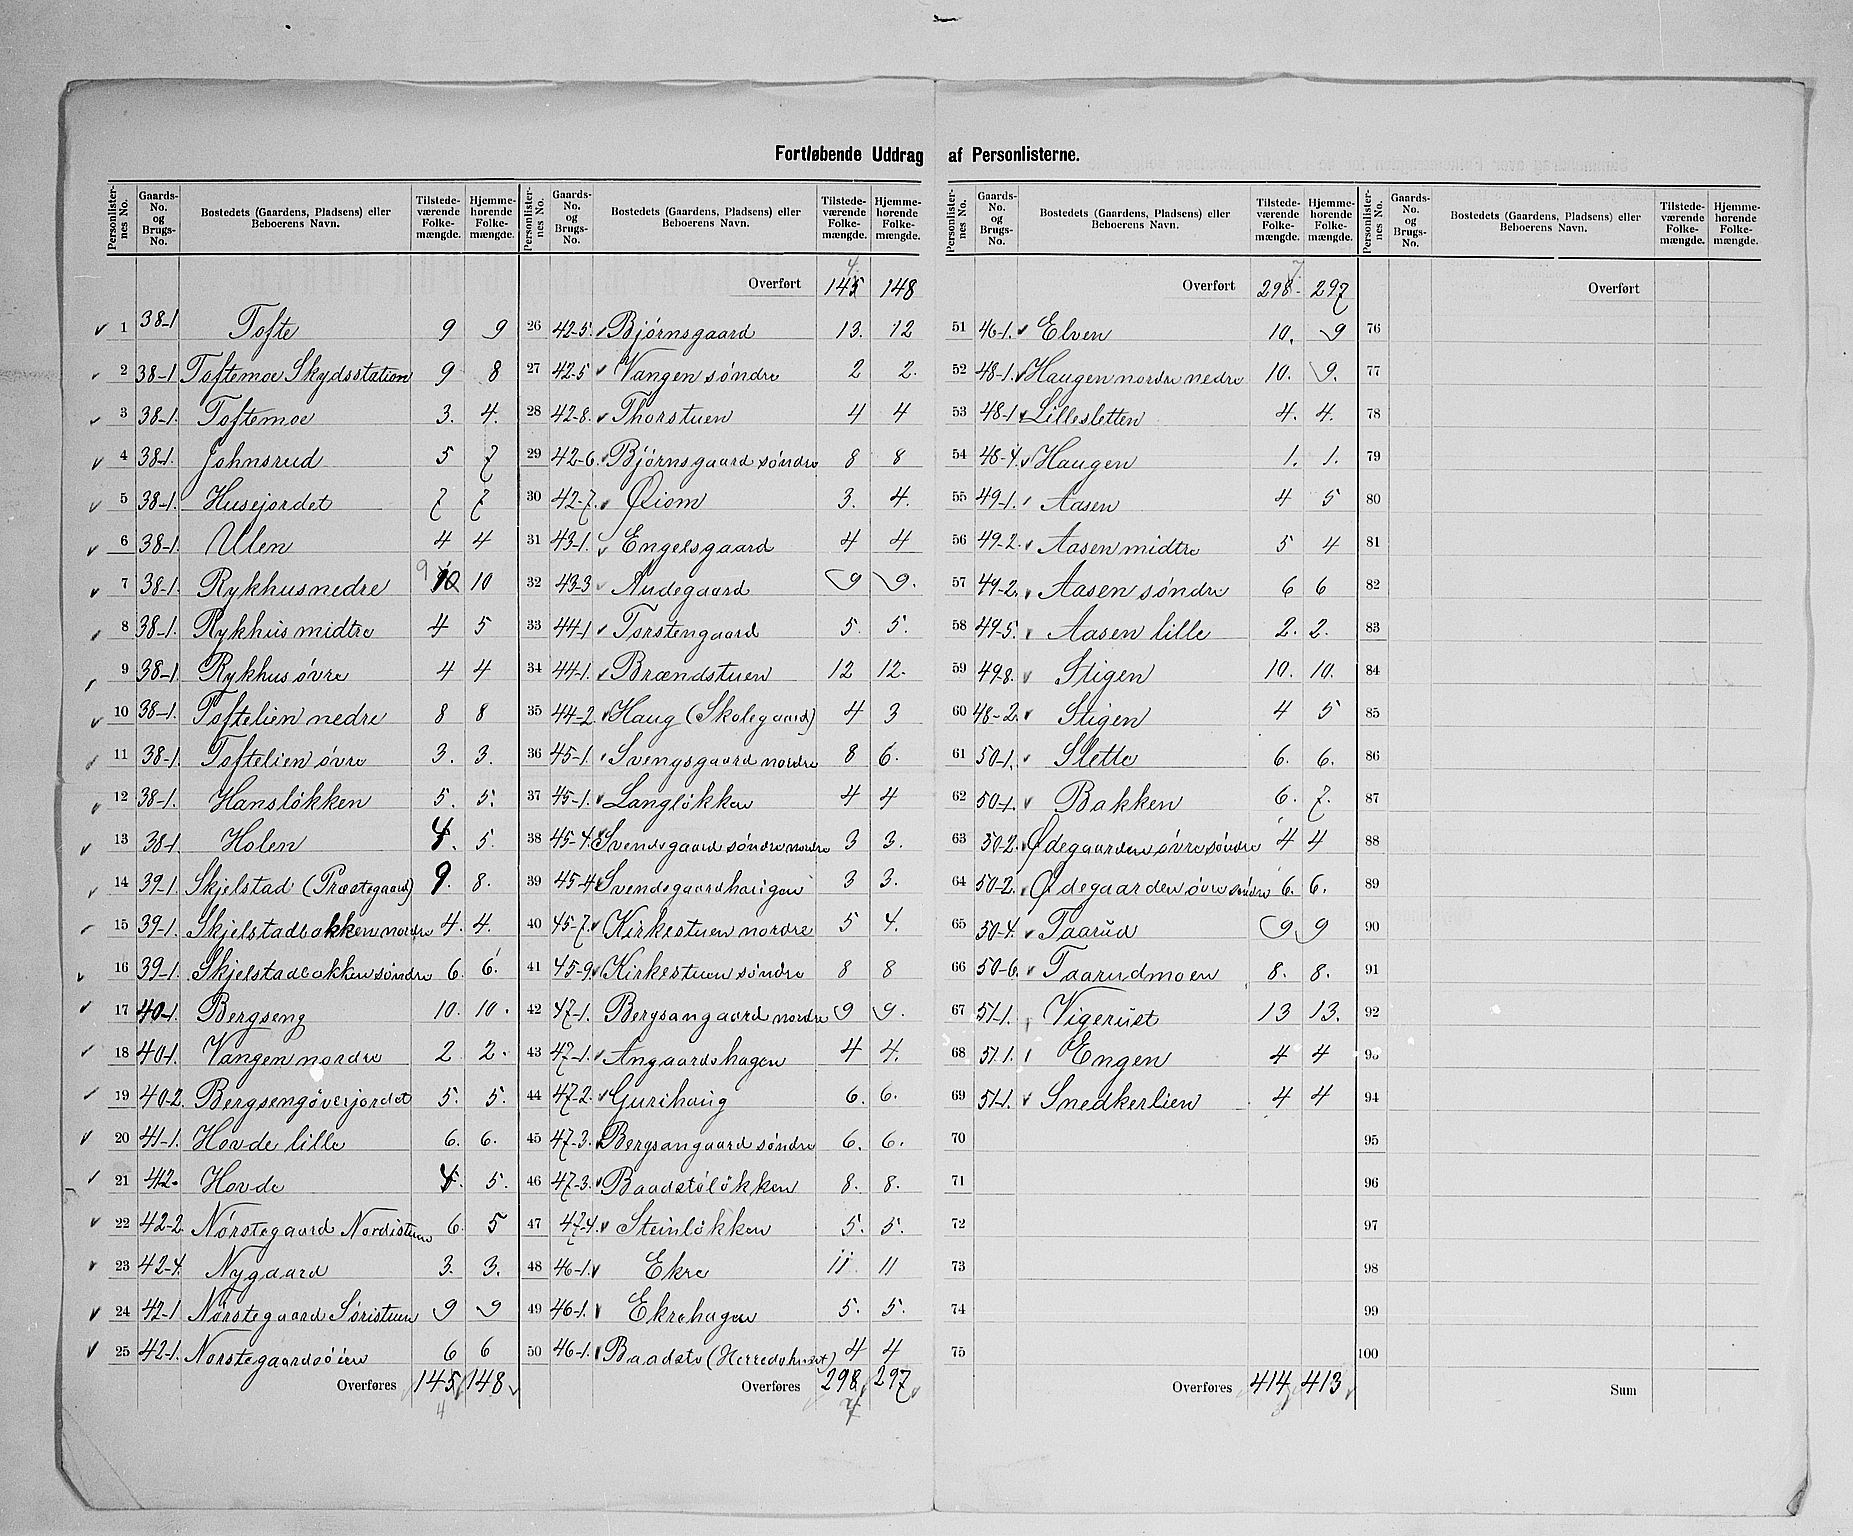 Fortløbende Uddrag af Personlisterne.
Personlisternes No. Gaards-No. og Brugs-No. Bostedets (Gaardens, Pladsens) eller Beboerens Navn. Tilstedeværende Folkemængde. Hjemmehørende Folkemængde.
1 38-1 Tofte 9 9
2 38-1 Toftemoe Skydsstation 9 8
3 38-1. Toftemoe 3. 4.
4 38-1. Johnsrud 5 7
5 38-1. Husejordet 7 7
6 38-1. Ulen 4 4
7 38-1. Rykhus nedre 9 10 10
8 38-1. Rykhus midtre 4 5
9 38-1. Rykhus øvre 4 4
10 38-1. Toftelien nedre 8 8
11 38-1. Toftelien øvre 3. 3.
12 38-1. Hansløkken 5. 5.
13 38-1 Holen 4. 5.
14 39-1 Skjelstad (Præstegaard) 9. 8.
15 39-1. Skjelstadbakken nordre 4. 4.
16 39-1. Skjelstadbakken søndre 6. 6.
17 40-1. Bergseng 10. 10.
18 40-1. Vangen nordre 2. 2.
19 40-2. Bergsengøverjordet 5. 5.
20 41-1. Hovde lille 6. 6.
21 42. Hovde 4. 5.
22 42-2 Nørstegaard Nordistuen 6. 5
23 42-4. Nygaard 3. 3.
24 42-1 Nørstegaard Søristuen 9 9
25 42-1. Nørstegaardsøien 6 6
Overføres 145 148
4
Personlisternes No. Gaards-No. og Brugs-No. Bostedets (Gaardens, Pladsens) eller Beboerens Navn. Tilstedeværende Folkemængde. Hjemmehørende Folkemængde.
4
Overført 145 148
26 42-5. Bjørnsgaard 13. 12
27 42-5 Vangen søndre 2 2.
28 42-8. Thorstuen 4 4
29 42-6. Bjørnsgaard søndre 8 8
30 42-7. Øiom 3. 4.
31 43-1. Engelsgaard 4 4
32 43-3 Audegaard 9 9.
33 44-1 Torstengaard 5. 5.
34 44-1. Brændstuen 12 12.
35 44-2 Haug (Skolegaard) 4 3
36 45-1. Svengsgaard nordre 8 6.
37 45-1. Langløkken 4 4
38 45-4. Svendsgaard søndre nordre 3 3.
39 45-4 Svendsgaardhaugen 3 3.
40 45-7. Kirkestuen nordre 5 4.
41 45-9. Kirkestuen søndre 8 8
42 47-1. Bergsangaard nordre 9 9.
43 47-1. Angaardshagen 4 4.
44 47-2. Gurihaug 6. 6.
45 47-3. Bergsangaard søndre 6. 6.
46 47-3. Baadstøløkken 8. 8.
47 47-4. Steinløkken 5. 5.
48 46-1. Ekre 11. 11
49 46-1. Ekrehagen 5. 5.
50 46-1. Baadstø (Herredshuset) 4 4
Overføres 298. 297
7
Personlisternes No. Gaards-No. og Brugs-No. Bostedets (Gaardens, Pladsens) eller Beboerens Navn. Tilstedeværende Folkemængde. Hjemmehørende Folkemængde.
7
Overført 298. 297
51 46-1. Elven 10. 9
52 48-1. Haugen nordre nedre 10. 9.
53 48-1 Lillesletten 4. 4.
54 48-4. Haugen 1. 1.
55 49-1. Aasen 4 5
56 49-2. Aasen midtre 5 4
57 49-2. Aasen søndre 6 6
58 49-5. Aasen lille 2. 2.
59 49-8. Stigen 10. 10.
60 48-2. Stigen 4 5
61 50-1. Slette 6. 6.
62 50-1. Bakken 6. 7.
63 50-2. Ødegaarden øvre søndre 4 4
64 50-2. Ødegaarden øvre søndre 6. 6.
65 50-4. Taarud 9 9
66 50-6. Taarudmoen 8. 8.
67 51-1. Vigerust 13 13.
68 51-1. Engen 4 4
69 51-1. Snedkerlien 4 4
70
71
72
73
74
75
Overføres 414 413
Personlisternes No. Gaards-No. og Brugs-No. Bostedets (Gaardens, Pladsens) eller Beboerens Navn. Tilstedeværende Folkemængde. Hjemmehørende Folkemængde.
Overført
76
77
78
79
80
81
82
83
84
85
86
87
88
89
90
91
92
93
94
95
96
97
98
99
100
Sum